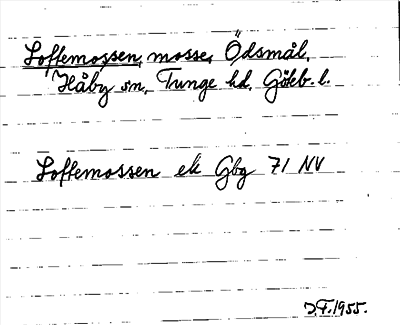 Loffemossen, mosse, Ödsmål,
Håby sn, Tunge hd, Göteb. l.
Loffemossen ek Gbg 71 NV
J.F. 1955.